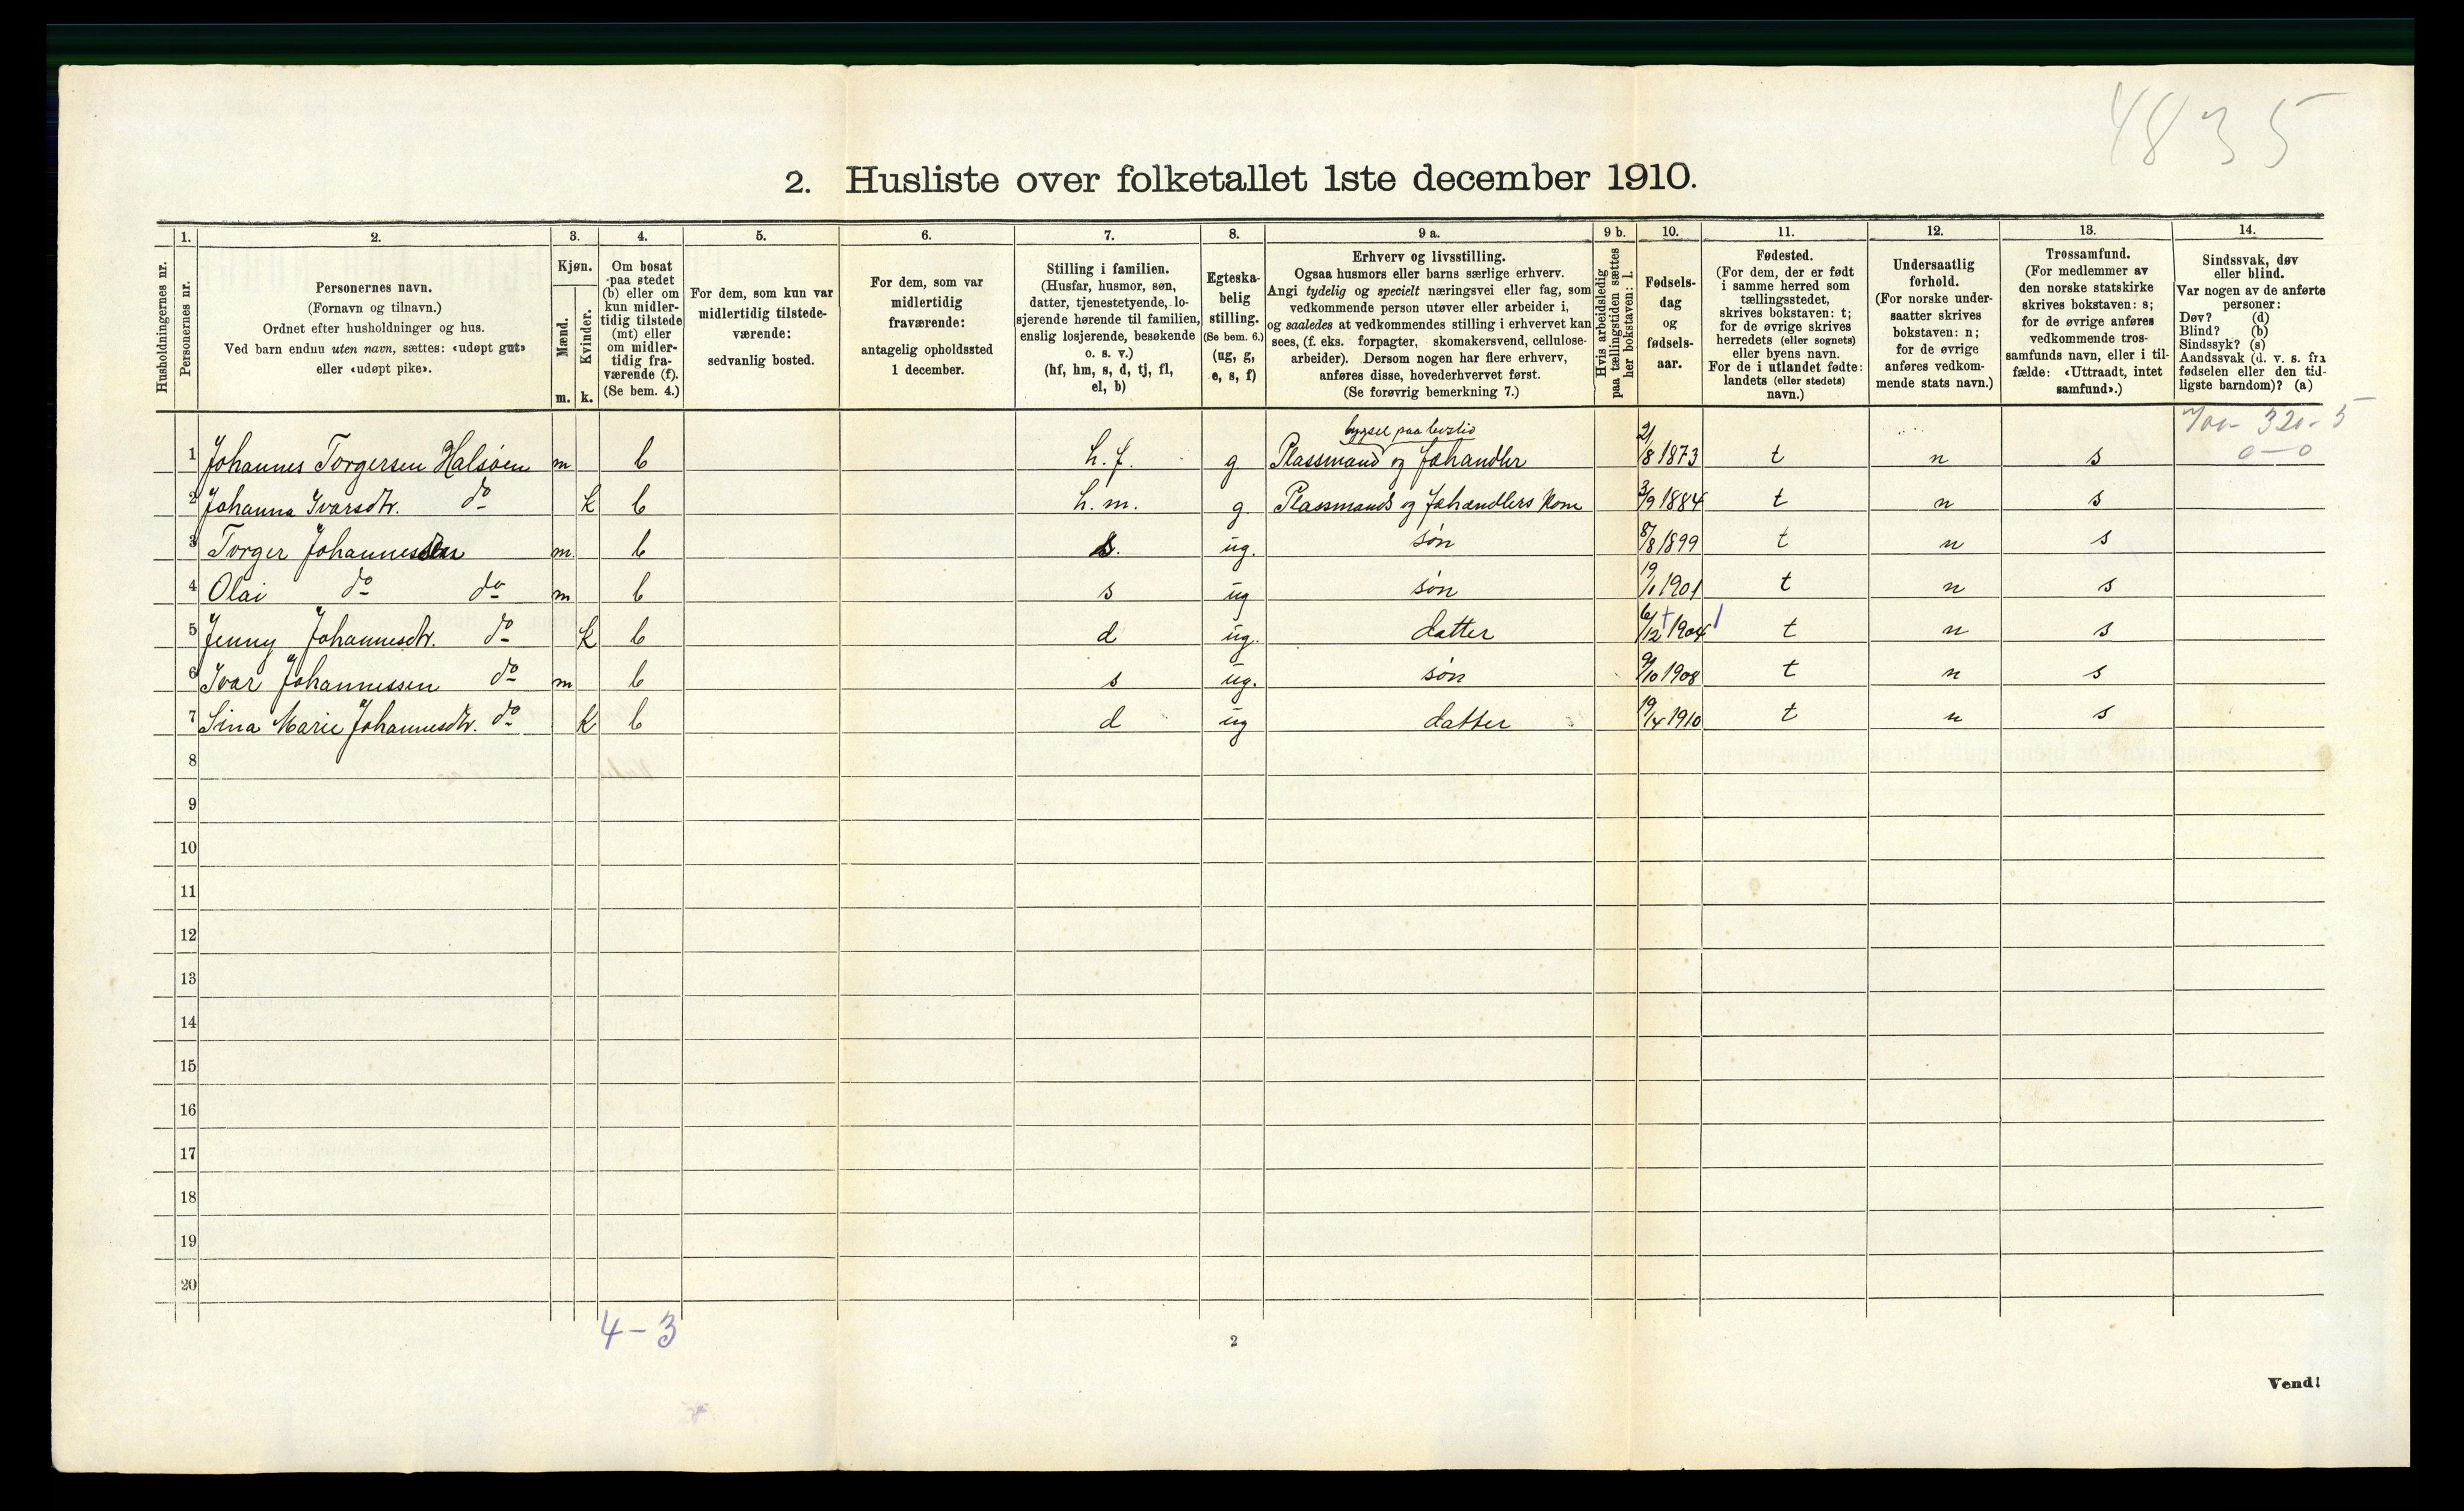 4835
2. Husliste over folketallet 1ste december 1910.
Husholdningernes nr.
1.
Personernes nr.
2.
Personernes navn.
(Fornavn og tilnavn.)
Ordnet efter husholdninger og hus.
Ved barn endnu uten navn, sættes: «udøpt gut»
eller «udøpt pike».
3.
Kjøn.
Mænd.
Kvinder.
m.
k.
4.
Om bosat
paa stedet
(b) eller om
kun midler-
tidig tilstede
(mt) eller
om midler-
tidig fra-
værende (f).
(Se bem. 4.)
5.
For dem, som kun var
midlertidig tilstede-
værende:
sedvanlig bosted.
6.
For dem, som var
midlertidig
fraværende:
antagelig opholdssted
1 december.
7.
Stilling i familien.
(Husfar, husmor, søn,
datter, tjenestetyende, lo-
sjerende hørende til familien,
enslig losjerende, besøkende
o. s. v.)
(hf, hm, s, d, tj, fl,
el, b)
8.
Egteska-
belig
stilling.
(Se bem. 6.)
(ug, g,
e, s, f)
9 a.
Erhverv og livsstilling.
Ogsaa husmors eller barns særlige erhverv.
Angi tydelig og specielt næringsvei eller fag, som
vedkommende person utøver eller arbeider i,
og saaledes at vedkommendes stilling i erhvervet kan
sees, (f. eks. forpagter, skomakersvend, cellulose-
arbeider). Dersom nogen har flere erhverv,
anføres disse, hovederhvervet først.
(Se forøvrig bemerkning 7.)
9 b.
Hvis arbeidsledig
paa tællingstiden sættes
her bokstaven: l.
10.
Fødsels-
dag
og
fødsels-
aar.
11.
Fødested.
(For dem, der er født
i samme herred som
tællingsstedet,
skrives bokstaven: t;
for de øvrige skrives
herredets (eller sognets)
eller byens navn.
For de i utlandet fødte:
landets (eller stedets)
navn.)
12.
Undersaatlig
forhold.
(For norske under-
saatter skrives
bokstaven: n;
for de øvrige
anføres vedkom-
mende stats navn.)
13.
Trossamfund.
(For medlemmer av
den norske statskirke
skrives bokstaven: s;
for de øvrige anføres
vedkommende tros-
samfunds navn, eller i til-
fælde: «Uttraadt, intet
samfund».)
14.
Sindssvak, døv
eller blind.
Var nogen av de anførte
personer:
Døv? (d)
Blind? (b)
Sindssyk? (s)
Aandssvak (d. v. s. fra
fødselen eller den tid-
ligste barndom)? (a)
320-5
0-0
bygsel paa livstid
1 Johannes Torgersen Halsøen m b h. f. g Plassmand og Jøhandler 21/8 1873 t n s
2 Johanna Ivarsdtr. do k b h. m. g. Plassmands og Jøhandlers kone 3/9 1884 t n s
3 Torger Johannessen m. b s. ug. søn 8/8 1899 t n s
4 Olai do do m b s ug søn 1901 t n s
5 Jenny Johannesdtr. do k b d ug. datter 6/12 1904 t n s
6 Ivar Johannessen do m b s ug. søn 9/10 1908 t n s
7 Sina Marie Johannesdtr. do k b d ug datter 19/4 1910 t n s
8
9
10
11
12
13
14
15
16
17
18
19
20
4-3
2
Vend!